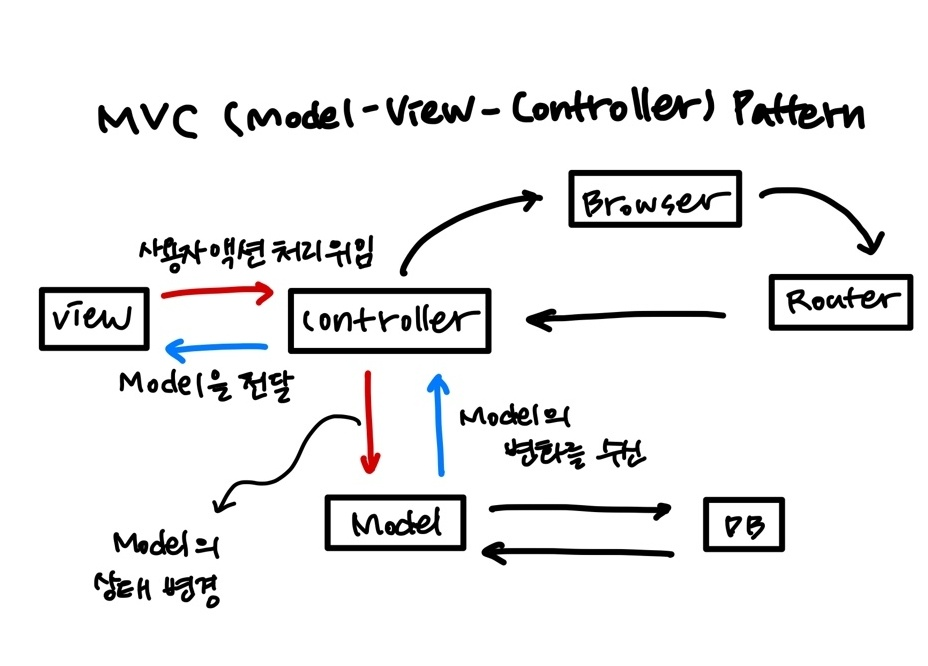 MVC (Model-View-Controller) Pattern
Browser
사용자 액션 처리 위임
View
Controller
Router
Model을 전달
Model의
변화를 수신
Model
DB
Model의
상태 변경